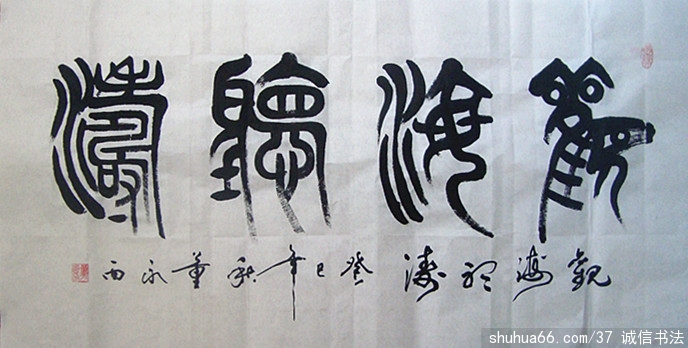 觀海聽濤
觀海聽濤 癸巳年秋 董永西
shuhua66.com/37 诚信书法